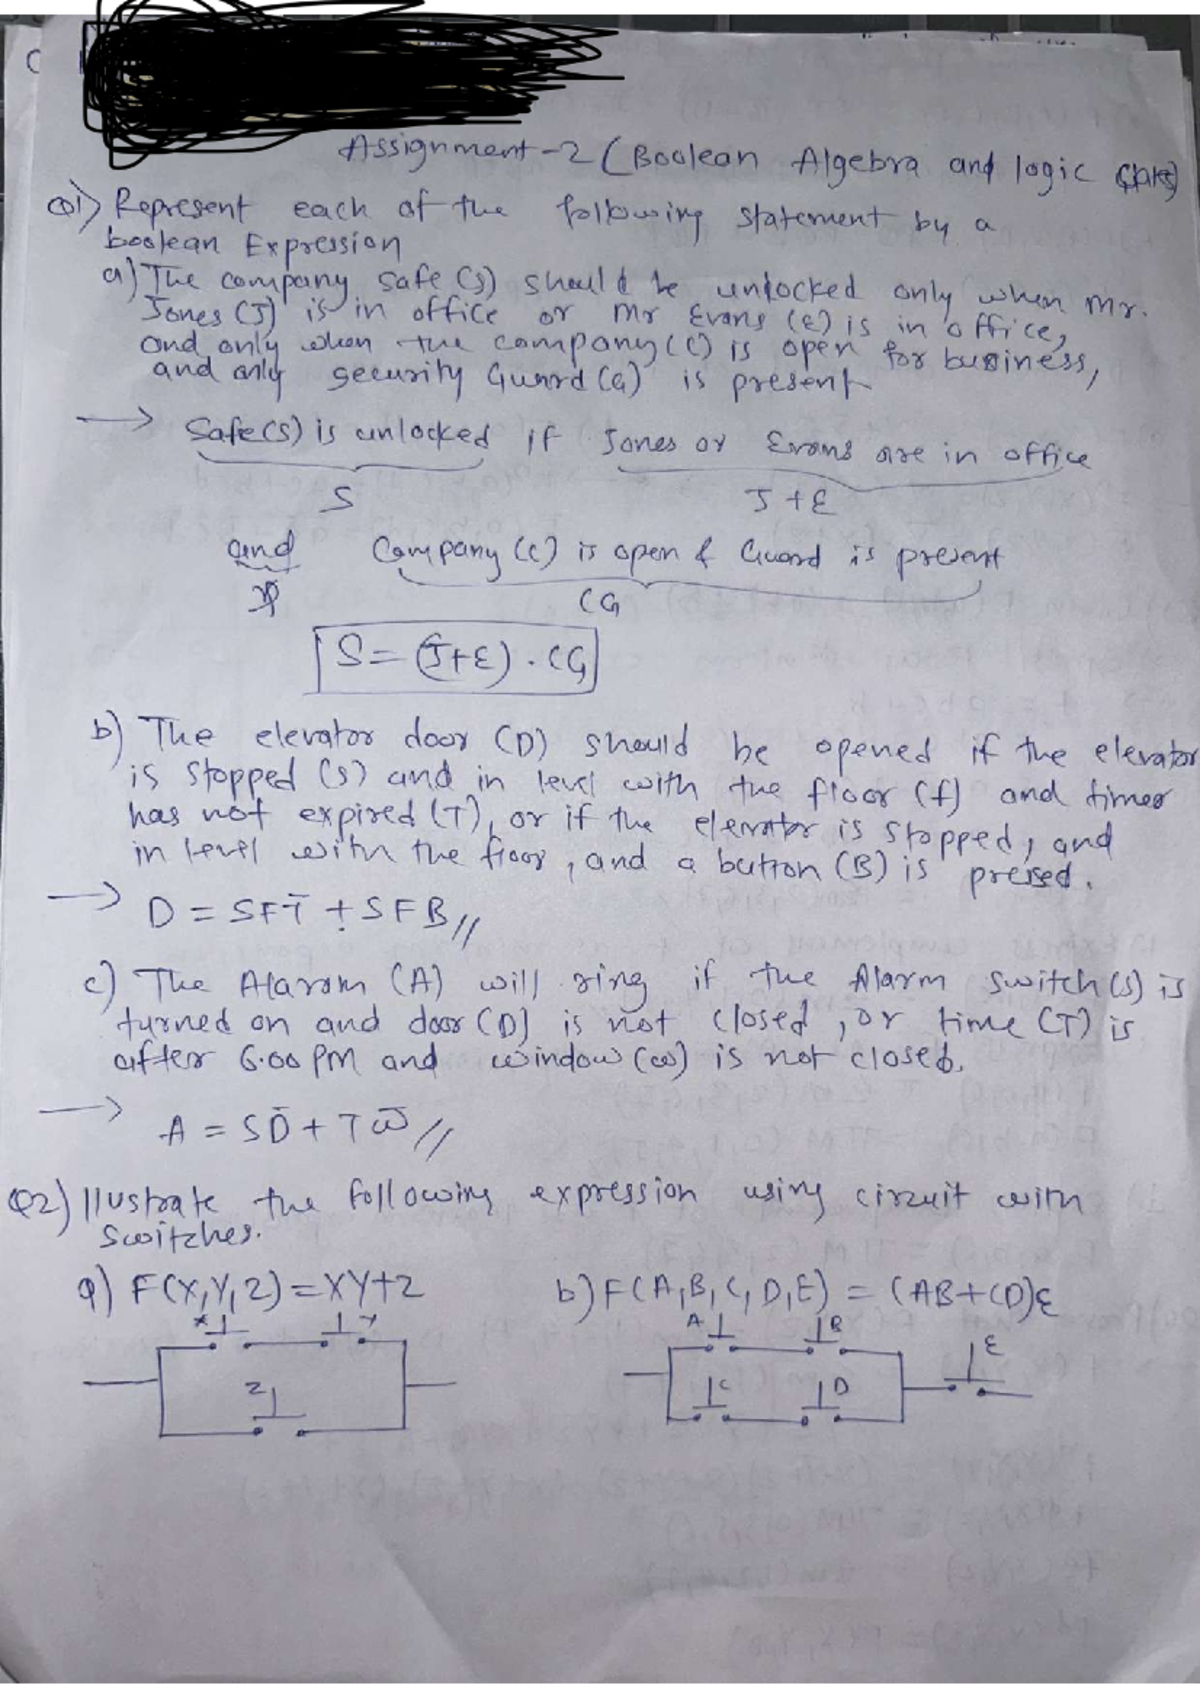 Assignment-2 (Boolean Algebra and logic Gates)
Q1) Represent each of the following statement by a
boolean Expression
a) The company safe (S) should be unlocked only when Mr.
Jones (J) is in office or Mr Evans (E) is in office,
and only when the company (C) is open for business,
and only security Guard (G) is present
→ Safe(S) is unlocked if Jones or Evans are in office
S J+E
and Company (C) is open & Guard is present
CG
S = (J+E) . CG
b) The elevator door (D) should be opened if the elevator
is stopped (S) and in level with the floor (f) and timer
has not expired (T), or if the elevator is stopped, and
in level with the floor, and a button (B) is pressed.
→ D = SFT̄ + SFB //
c) The Alarom (A) will ring if the Alarm switch (S) is
turned on and door (D) is not closed, or time (T) is
after 6.00 PM and window (w) is not closed.
→ A = SD̄ + TW̄ //
Q2) Illustrate the following expression using circuit with
switches.
a) F(X,Y,Z) = XY+Z b) F(A,B,C,D,E) = (AB+CD)E
X Y A B
E
Z C D